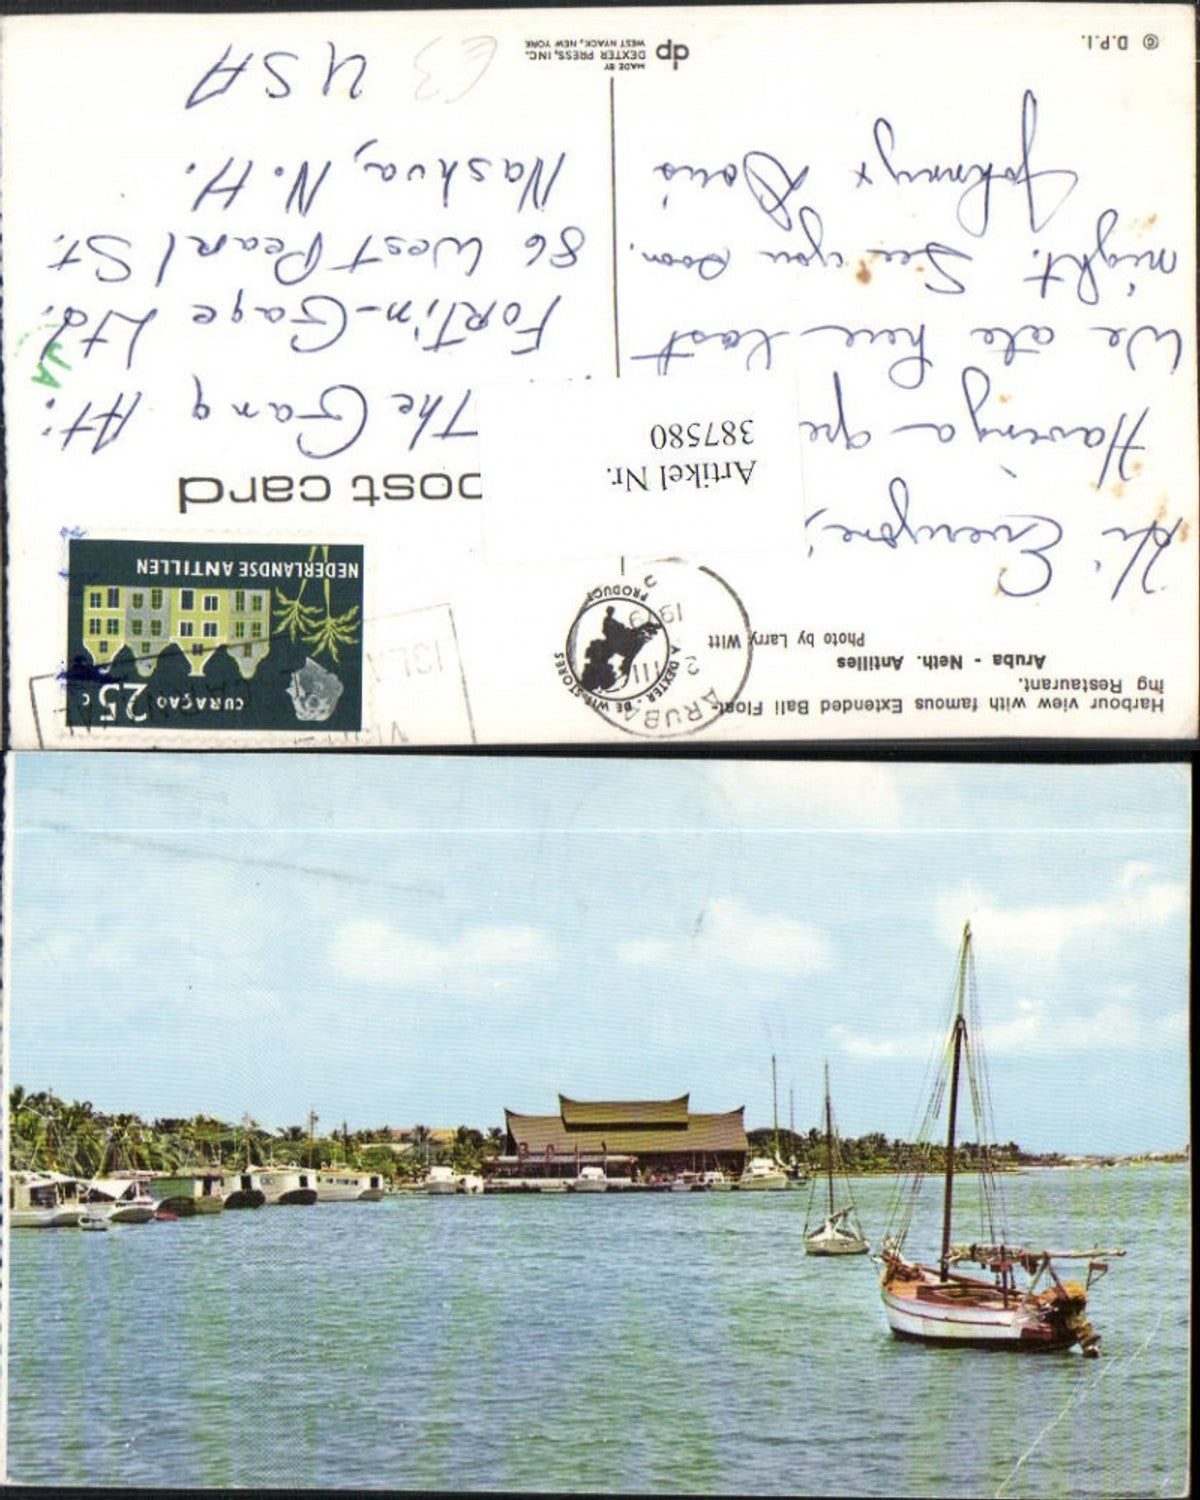 Harbour view with famous Extended Bali Float-
ing Restaurant.
Aruba - Neth. Antilles
Photo by Larry Witt
Hi Everyone,
Having a
We ate here last
night. See you soon.
Johnny + Doris
© D.P.I.
DE WIT STORES
A DEXTER PRODUCT
ARUBA
2 III
19
Artikel Nr.
387580
dp
MADE BY
DEXTER PRESS, INC.
WEST NYACK, NEW YORK
post card
CURAÇAO 25 c
NEDERLANDSE ANTILLEN
The Gang At:
Fortin-Gage Ltd.
86 West Pearl St.
Nashua, N.H.
USA
E3